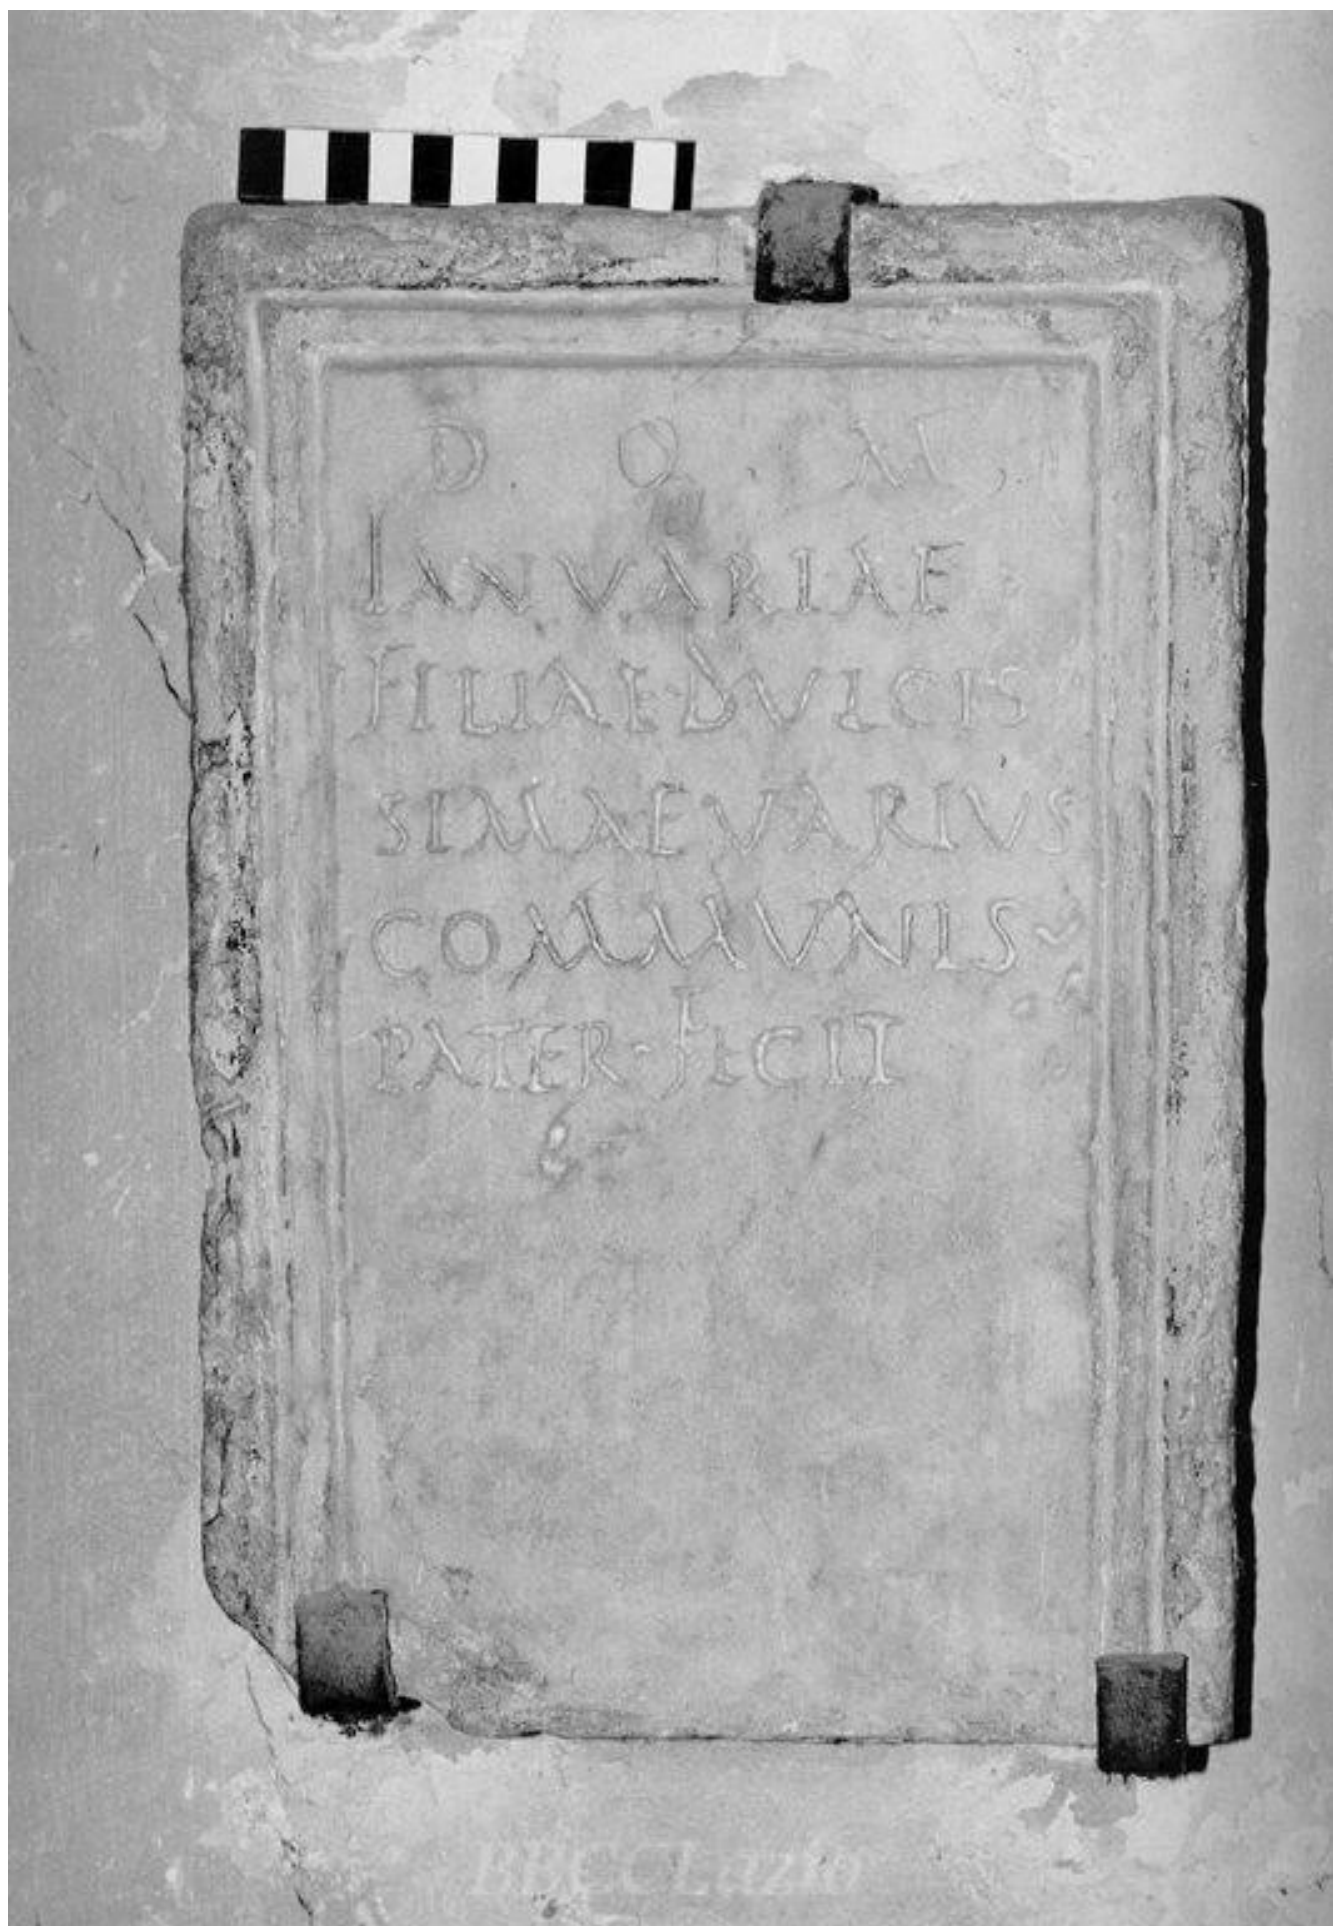 D O M
IANVARIAE
FILIAE DVLCIS
SIMAE VARIVS
COMMVNIS
PATER · FECIT
BBCC Lazio